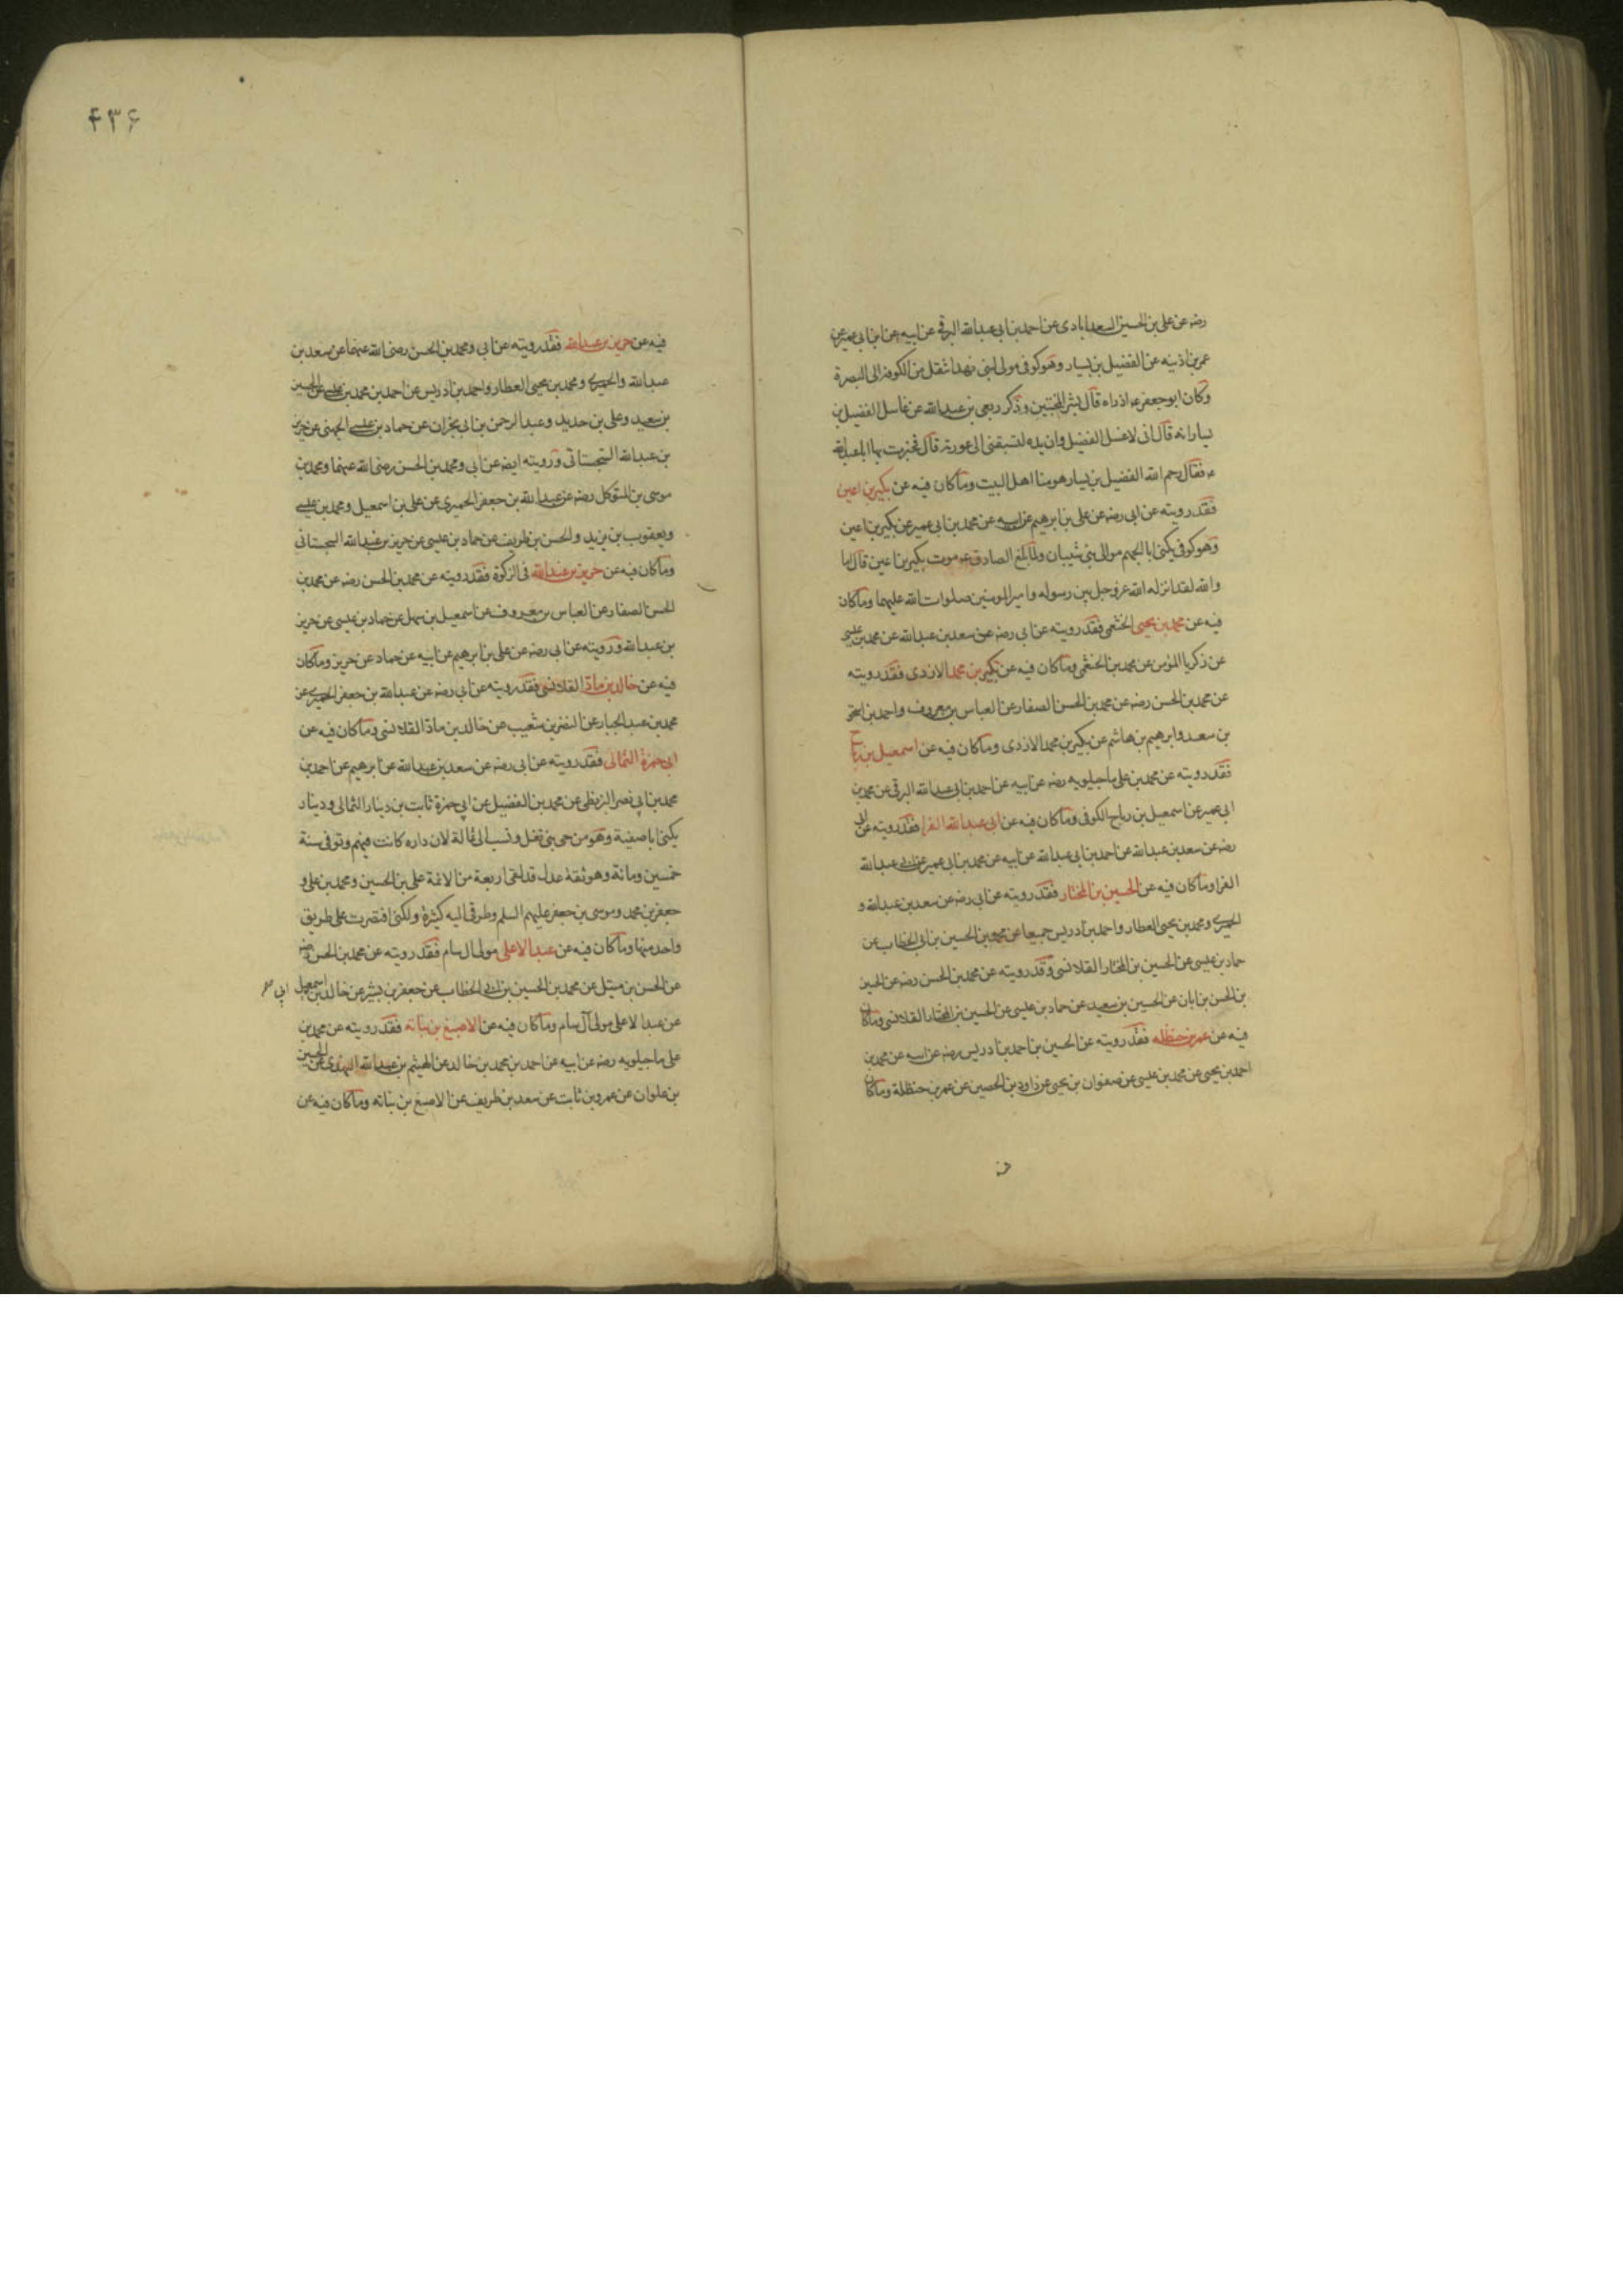 رضه عن علي بن الحسين السعدابادى عن احمد بن ابى عبدالله البرقى عن ابيه عن ابن ابى عمير عن
عمر بن اذينه عن الفضيل بن يسار وهو كوفى مولى لبنى نهد انتقل من الكوفة الى البصرة
وكان ابو جعفر ع اذا راه قال بشر المخبتين وذكر ربعى بن عبدالله عن غاسل الفضيل بن
يسار انه قال انى لاغسل الفضيل وان يده لتسبقنى الى عورته قال فخبرت بها ابا عبدالله
ع فقال رحم الله الفضيل بن يسار هو منا اهل البيت وما كان فيه عن بكير بن اعين
فقد رويته عن ابى رضه عن على بن ابرهيم عن ابيه عن محمد بن ابى عمير عن بكير بن اعين
وهو كوفى يكنى ابا الجهم موالى بنى شيبان ولما بلغ الصادق ع موت بكير بن اعين قال اما
والله لقد انزله الله عز وجل بين رسوله وامير المومنين صلوات الله عليهما وما كان
فيه عن محمد بن يحيى الخثعمى فقد رويته عن ابى رضه عن سعد بن عبدالله عن محمد بن عيسى
عن زكريا المؤمن عن محمد بن الخثعمى وما كان فيه عن بكير بن محمد الازدى فقد رويته
عن محمد بن الحسن رضه عن محمد بن الحسن الصفار عن العباس بن معروف واحمد بن اسحق
بن سعد وابرهيم بن هاشم عن بكير بن محمد الازدى وما كان فيه عن اسمعيل بن رباح
فقد رويته عن محمد بن على ماجيلويه رضه عن ابيه عن احمد بن ابى عبدالله البرقى عن محمد بن
ابى عمير عن اسمعيل بن رباح الكوفى وما كان فيه عن ابى عبدالله الفرا فقد رويته عن ابى
رضه عن سعد بن عبدالله عن احمد بن ابى عبدالله عن ابيه عن محمد بن ابى عمير عن ابى عبدالله
الفرا وما كان فيه عن الحسين بن المختار فقد رويته عن ابى رضه عن سعد بن عبدالله و
الحميرى ومحمد بن يحيى العطار واحمد بن ادريس جميعا عن محمد بن الحسين بن ابى الخطاب عن
حماد بن عيسى عن الحسين بن المختار القلانسى وقد رويته عن محمد بن الحسن رضه عن الحسين
بن الحسن بن ابان عن الحسين بن سعيد عن حماد بن عيسى عن الحسين بن المختار القلانسى وما كان
فيه عن عمر بن حنظله فقد رويته عن الحسين بن احمد بن ادريس رضه عن ابيه عن محمد بن
احمد بن يحيى عن محمد بن عيسى عن صفوان بن يحيى عن داود بن الحصين عن عمر بن حنظلة وما كان
۴۳۶
فيه عن حريز بن عبدالله فقد رويته عن ابى ومحمد بن الحسن رضى الله عنهما عن سعد بن
عبدالله والحميرى ومحمد بن يحيى العطار واحمد بن ادريس عن احمد بن محمد بن عيسى عن الحسين
بن سعيد وعلى بن حديد وعبد الرحمن بن ابى نجران عن حماد بن عيسى الجهنى عن حريز
بن عبدالله السجستانى ورويته ايضه عن ابى ومحمد بن الحسن رضى الله عنهما ومحمد بن
موسى بن المتوكل رضه عن عبدالله بن جعفر الحميرى عن على بن اسمعيل ومحمد بن عيسى
ويعقوب بن يزيد والحسن بن ظريف عن حماد بن عيسى عن حريز بن عبدالله السجستانى
وما كان فيه عن حريز بن عبدالله فى الزكوة فقد رويته عن محمد بن الحسن رضه عن محمد بن
الحسن الصفار عن العباس بن معروف عن اسمعيل بن سهل عن حماد بن عيسى عن حريز
بن عبدالله ورويته عن ابى رضه عن على بن ابرهيم عن ابيه عن حماد عن حريز وما كان
فيه عن خالد بن ماذ القلانسى فقد رويته عن ابى رضه عن عبدالله بن جعفر الحميرى عن
محمد بن عبد الجبار عن النضر بن شعيب عن خالد بن ماذ القلانسى وما كان فيه عن
ابى حمزة الثمالى فقد رويته عن ابى رضه عن سعد بن عبدالله عن ابرهيم عن احمد بن
محمد بن ابى نصر البزنطى عن محمد بن الفضيل عن ابى حمزة ثابت بن دينار الثمالى ودينار
يكنى ابا صفية وهو من حى بنى ثعل ونسب الى ثمالة لان داره كانت فيهم وتوفى سنة
خمسين ومائة وهو ثقة عدل قد لقى اربعة من الائمة على بن الحسين ومحمد بن على و
جعفر بن محمد وموسى بن جعفر عليهم السلم وطرقى اليه كثيرة ولكنى اقتصرت على طريق
واحد منها وما كان فيه عن عبد الاعلى مولى ال سام فقد رويته عن محمد بن الحسن رضه
عن الحسن بن متيل عن محمد بن الحسين بن ابى الخطاب عن جعفر بن بشير عن خالد بن اسمعيل
عن عبد الاعلى مولى آل سام وما كان فيه عن الاصبغ بن نباته فقد رويته عن محمد بن
على ماجيلويه رضه عن ابيه عن احمد بن محمد بن خالد عن الهيثم بن عبدالله النهدى عن الحسين
بن علوان عن عمرو بن ثابت عن سعد بن طريف عن الاصبغ بن نباته وما كان فيه عن